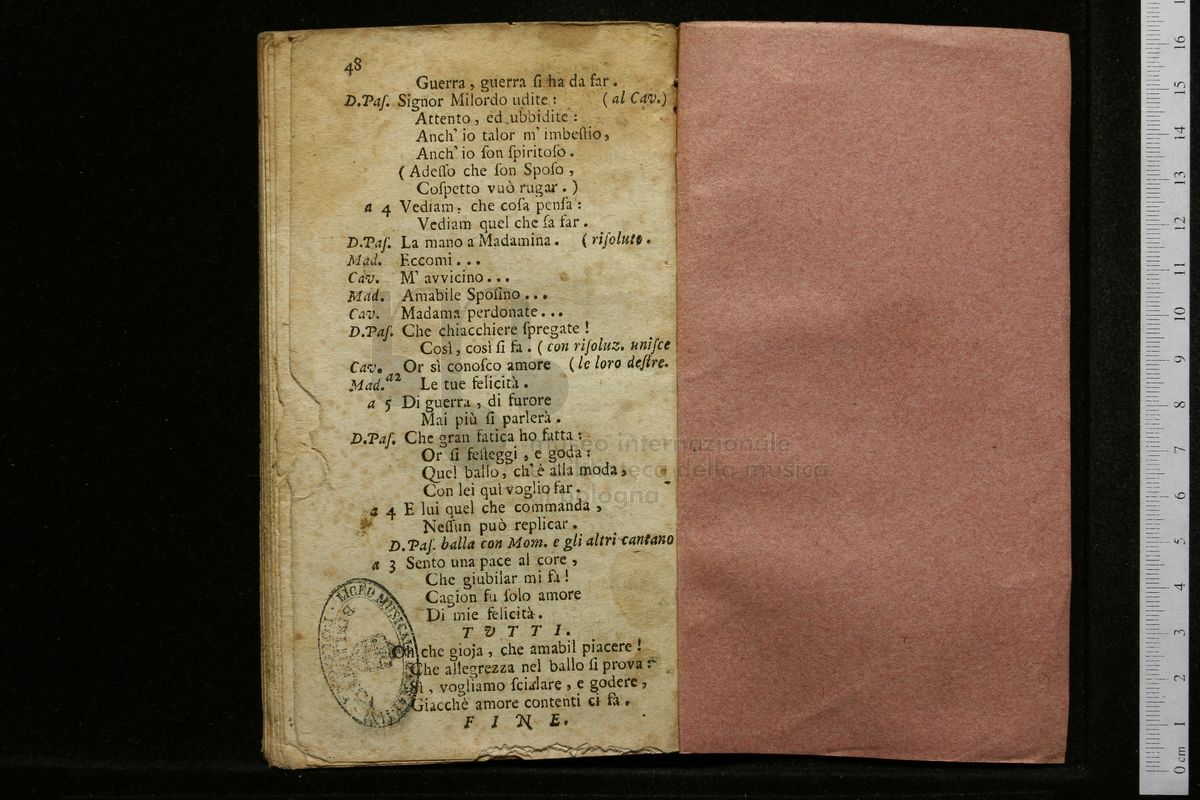 48
Guerra, guerra ſi ha da far.
D.Paſ. Signor Milordo udite: (al Cav.)
Attento, ed ubbidite:
Anch' io talor m' imbeſtio,
Anch' io ſon ſpiritoſo.
(Adeſſo che ſon Spoſo,
Coſpetto vuò rugar.)
a 4 Vediam, che coſa penſa:
Vediam quel che ſa far.
D.Paſ. La mano a Madamina. (riſoluto.
Mad. Eccomi...
Cav. M' avvicino...
Mad. Amabile Spoſino...
Cav. Madama perdonate...
D.Paſ. Che chiacchiere ſpregate!
Così, così ſi fa. (con riſoluz. uniſce
Cav. Or sì conoſco amore (le loro deſtre.
Mad. a2 Le tue felicità.
a 5 Di guerra, di furore
Mai più ſi parlerà.
D.Paſ. Che gran fatica ho fatta:
Or ſi feſteggi, e goda:
Quel ballo, ch' è alla moda,
Con lei quì voglio far.
a 4 E lui quel che commanda,
Neſſun può replicar.
D.Paſ. balla con Mom. e gli altri cantano
a 3 Sento una pace al core,
Che giubilar mi fa!
Cagion fu ſolo amore
Di mie felicità.
TVTTI.
Oh che gioja, che amabil piacere!
Che allegrezza nel ballo ſi prova:
Sì, vogliamo ſcialare, e godere,
Giacchè amore contenti ci fà.
FINE.
LICEO MUSICALE
museo internazionale
e biblioteca della musica
di bologna
0 cm 1 2 3 4 5 6 7 8 9 10 11 12 13 14 15 16